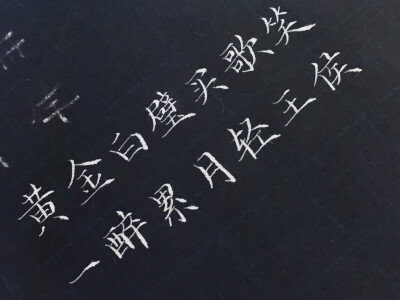 黄金白璧买歌笑
一醉累月轻王侯